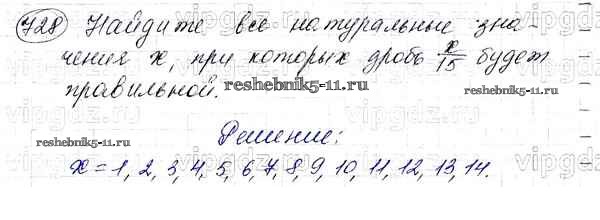 728 Найдите все натуральные зна-
чения x, при которых дробь x/15 будет
правильной.
reshebnik5-11.ru
reshebnik5-11.ru
Решение:
reshebnik5-11.ru
x = 1, 2, 3, 4, 5, 6, 7, 8, 9, 10, 11, 12, 13, 14.